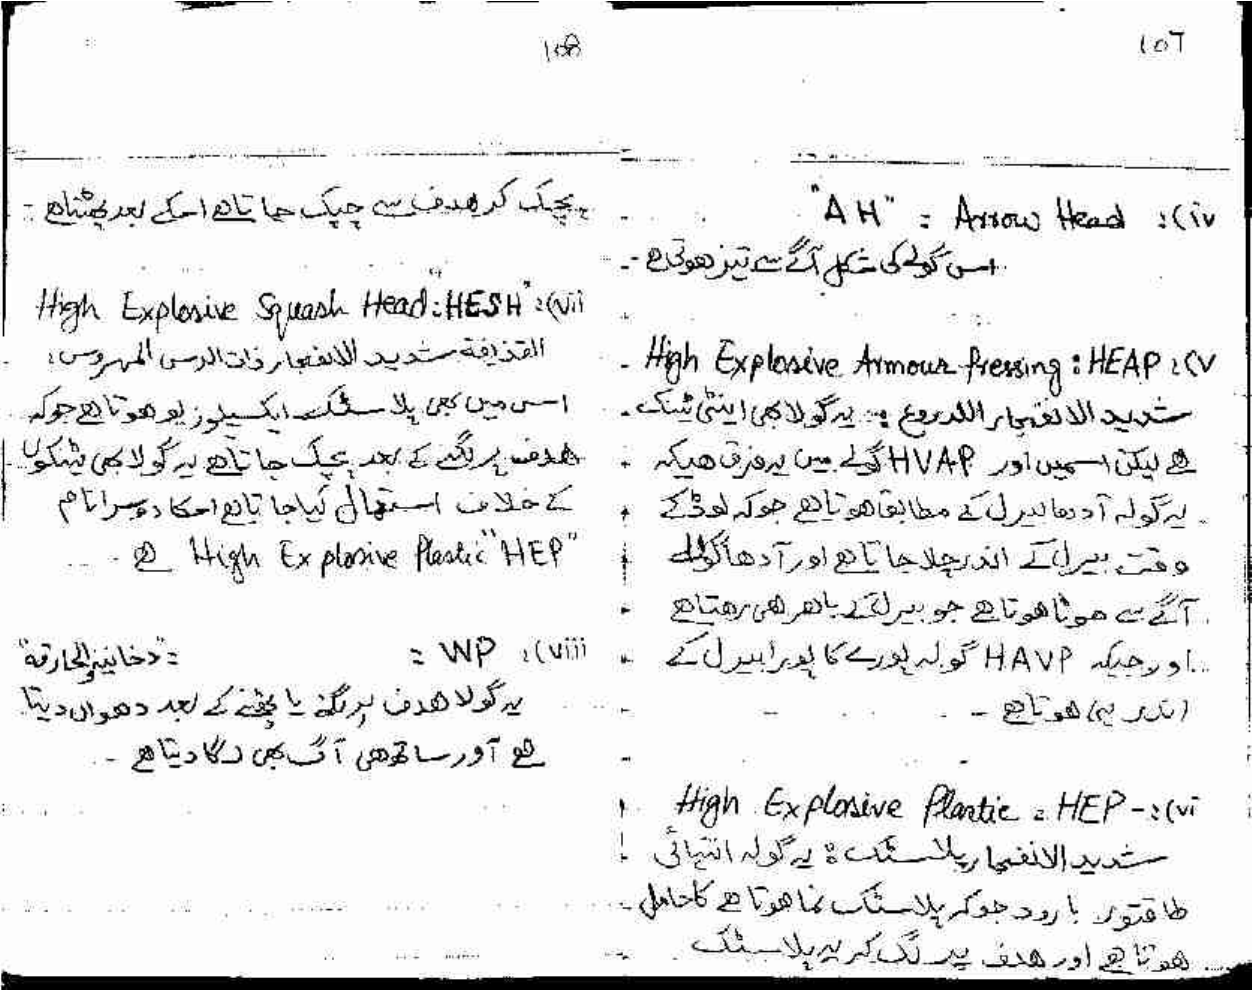 107
iv): Arrow Head = "AH"
اس گولے کی شکل آگے سے تیز ھوتی ھے -
v): HEAP : High Explosive Armour Pressing
شدید الانفجار اللدروع : یہ گولا بھی اینٹی ٹینک
ھے لیکن اسمیں اور HVAP گولے میں یہ فرق ھیکہ
یہ گولہ آدھا بیرل کے مطابق ھوتا ھے جوکہ لوڈ کے
وقت بیرل کے اندر چلا جاتا ھے اور آدھا گولے
آگے سے موٹا ھوتا ھے جو بیرل کے باھر ھی رھتا ھے
اور جبکہ HAVP گولہ پورے کا پورا بیرل کے
اندر ہی ھوتا ھے -
vi):- HEP = High Explosive Plastic
شدید الانفجار پلاسٹک : یہ گولہ انتہائی
طاقتور بارود جوکہ پلاسٹک نما ھوتا ھے کا حامل
ھوتا ھے اور ھدف پر لگ کر یہ پلاسٹک
108
پچک کر ھدف سے چپک جاتا ھے اسکے بعد پھٹتا ھے -
vii): "HESH" : High Explosive Squash Head
القذیفة شدید الانفجار ذات الرس المہروس :
اس میں بھی پلاسٹک ایکسپلوزیو ھوتا ھے جوکہ
ھدف پر لگنے کے بعد پچک جاتا ھے یہ گولا بھی ٹینکوں
کے خلاف استعمال کیا جاتا ھے اسکا دوسرا نام
"HEP" High Explosive Plastic ھے -
viii): WP = "دخانیہ والحارقة" =
یہ گولا ھدف پر لگنے یا پھٹنے کے بعد دھواں دیتا
ھے اور ساتھ ھی آگ بھی لگا دیتا ھے -